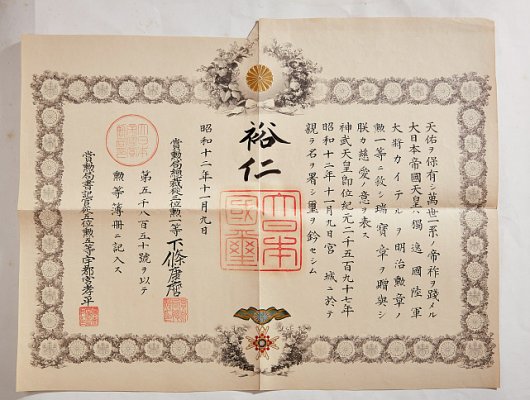 天佑ヲ保有シ萬世一系ノ帝祚ヲ踐メル
大日本帝國天皇ハ獨逸國陸軍
大將カイテルヲ明治勲章ノ
勲一等ニ敘シ瑞寶章ヲ贈與シ
朕カ慈愛ノ意ヲ表ス
神武天皇即位紀元二千五百九十七年
昭和十二年十一月九日宮城ニ於テ
親ラ名ヲ署シ璽ヲ鈐セシム
裕仁
大日本
國璽
昭和十二年十一月九日
賞勲局總裁從二位勲一等下條康麿
第五千八百五十號ヲ以テ
勲等簿册ニ記入ス
賞勲局書記官從五位勲五等宇都宮孝平